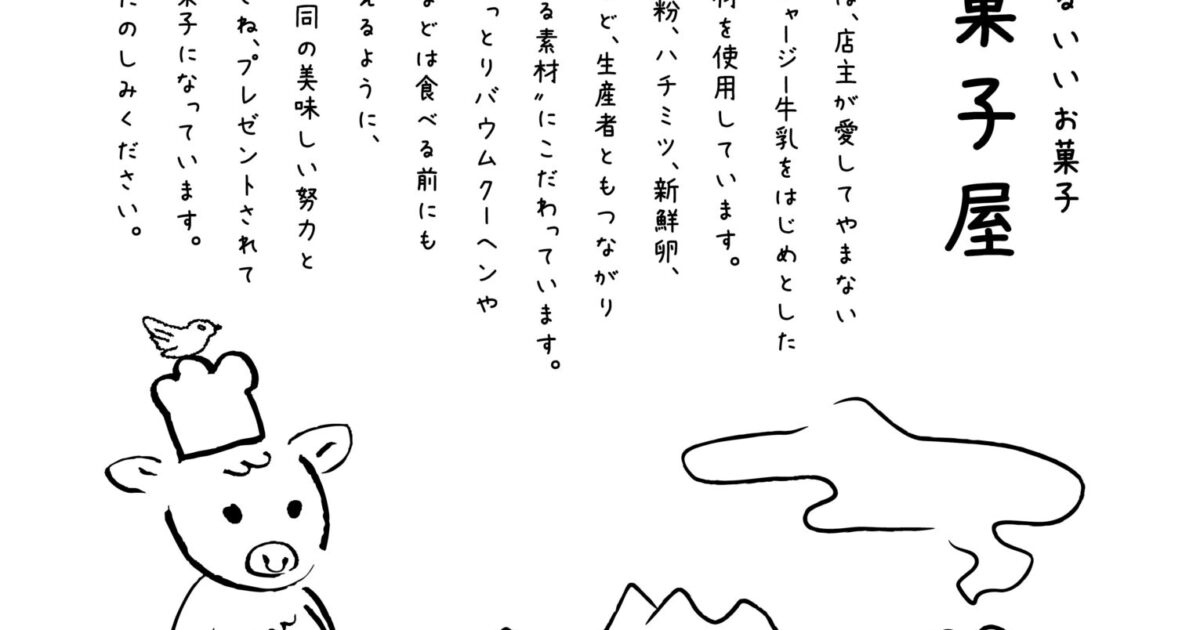 いいお菓子
菓子屋
店主が愛してやまない
ャージー牛乳をはじめとした
を使用しています。
粉、ハチミツ、新鮮卵、
ど、生産者ともつながり
る素材〟にこだわっています。
っとりバウムクーヘンや
などは食べる前にも
えるように、
同の美味しい努力と
ね、プレゼントされて
菓子になっています。
たのしみください。